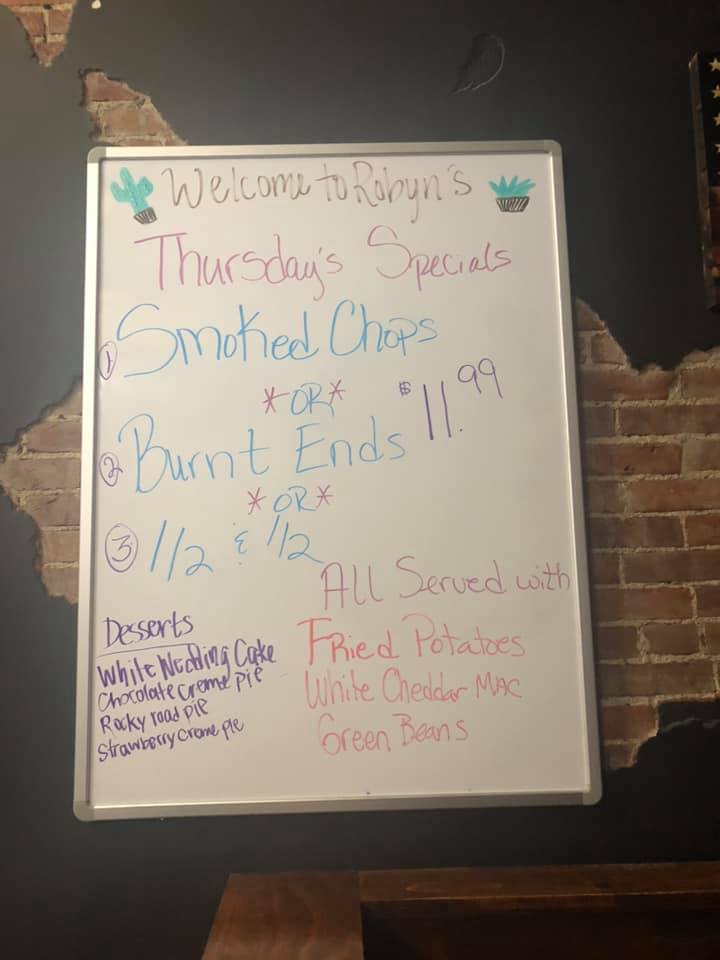 Welcome to Robyn's
Thursday's Specials
1 Smoked Chops
*OR*
$11.99
2 Burnt Ends
*OR*
3 1/2 & 1/2
All Served with
Fried Potatoes
White Cheddar Mac
Green Beans
Desserts
White Wedding Cake
Chocolate creme pie
Rocky road pie
Strawberry creme pie